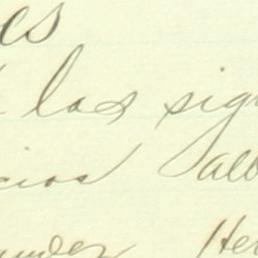 es
las sig
cios Salb
undez Her